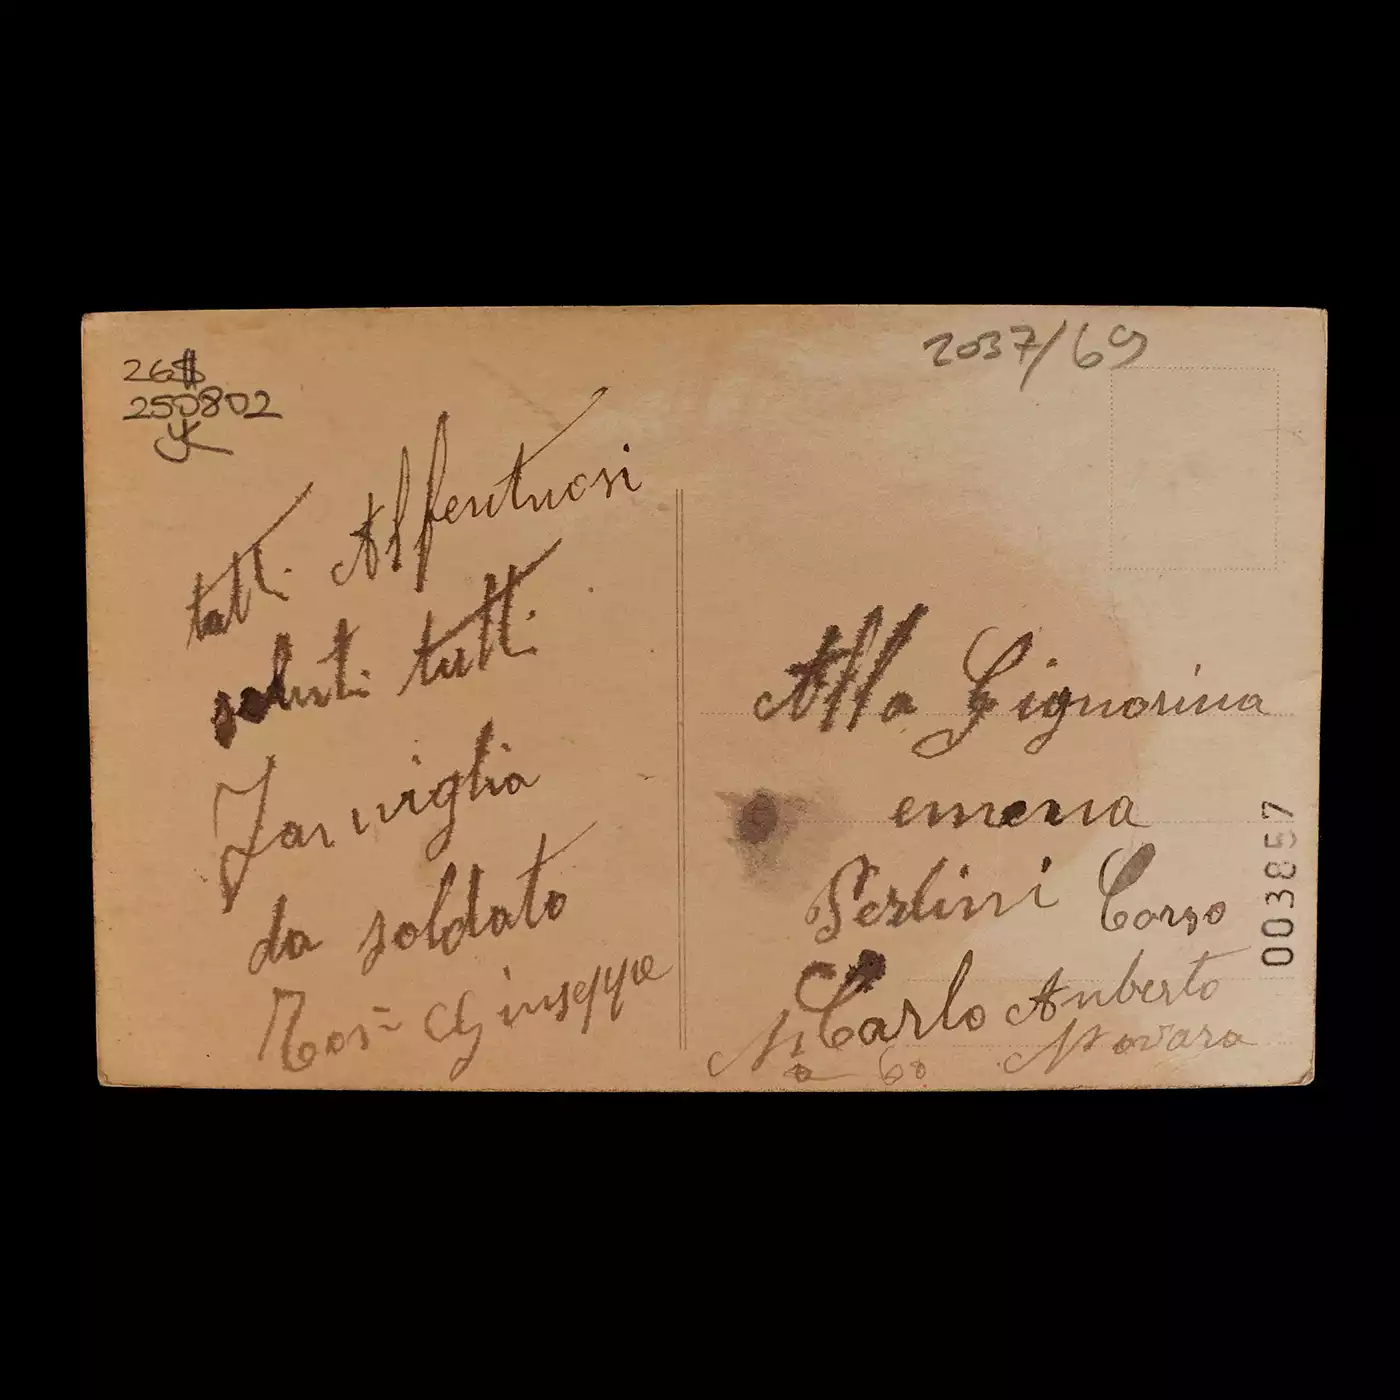 26$
250802
JK
2037/69
tatti Alfentuosi
saluti tutti
Famiglia
da soldato
Tosi Giuseppe
Alla Signorina
emena
Perlini Corso
Carlo Anberto
No 60 Novara
003857